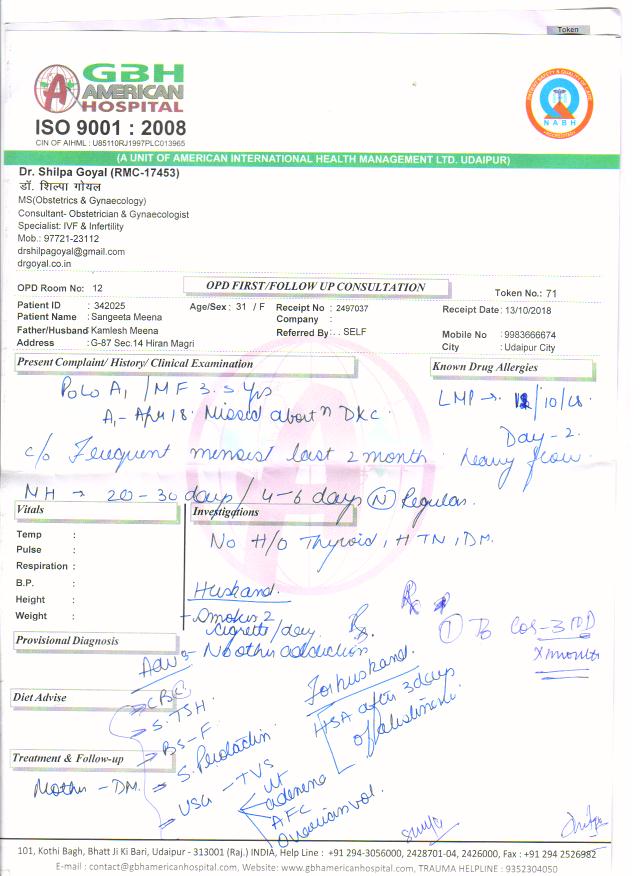 Token
GBH
AMERICAN
HOSPITAL
ISO 9001 : 2008
CIN OF AIHML : U85110RJ1997PLC013965
NABH
(A UNIT OF AMERICAN INTERNATIONAL HEALTH MANAGEMENT LTD. UDAIPUR)
Dr. Shilpa Goyal (RMC-17453)
डॉ. शिल्पा गोयल
MS(Obstetrics & Gynaecology)
Consultant- Obstetrician & Gynaecologist
Specialist: IVF & Infertility
Mob.: 97721-23112
drshilpagoyal@gmail.com
drgoyal.co.in
OPD Room No: 12 OPD FIRST/FOLLOW UP CONSULTATION Token No.: 71
Patient ID : 342025 Age/Sex: 31 / F Receipt No : 2497037 Receipt Date: 13/10/2018
Patient Name : Sangeeta Meena Company :
Father/Husband Kamlesh Meena Referred By: . SELF Mobile No : 9983666674
Address : G-87 Sec.14 Hiran Magri City : Udaipur City
Present Complaint/ History/ Clinical Examination Known Drug Allergies
P0L0 A1 / MF 3.5 yrs LMP → /10/18
A1 - Apr 18. Missed abortn D&C. Day - 2.
c/o Frequent menses last 2 month. heavy flow.
MH → 20-30 days / 4-6 days (N) Regular.
Vitals Investigations
Temp :
Pulse :
Respiration :
B.P. :
Height :
Weight :
No H/O Thyroid, HTN, DM.
Husband.
Smoker 2
cigrette/day.
No other addiction
Rx
(1) Tb CoQ - 3 BD
x months
Provisional Diagnosis
Adv
CBC
S. TSH
BS-F
S. Prolactin
USG - TVS
Ut
adenexa
AFC
Ovarian vol.
For husband.
HSA after 3 days
of abstinence
Diet Advise
Treatment & Follow-up
Mother - DM.
101, Kothi Bagh, Bhatt Ji Ki Bari, Udaipur - 313001 (Raj.) INDIA, Help Line : +91 294-3056000, 2428701-04, 2426000, Fax : +91 294 2526982
E-mail : contact@gbhamericanhospital.com, Website: www.gbhamericanhospital.com, TRAUMA HELPLINE : 9352304050